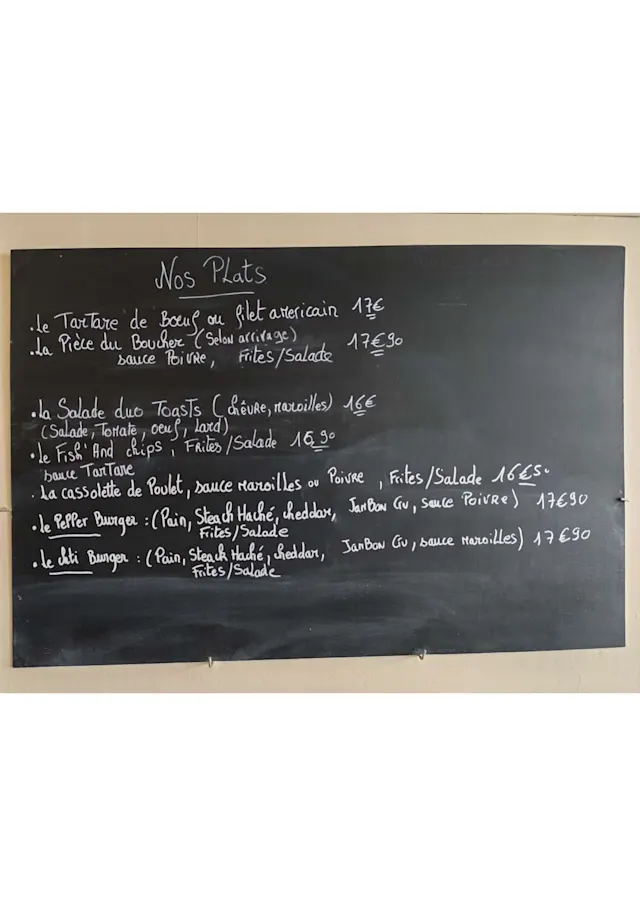 Nos Plats
.Le Tartare de Bœuf ou filet americain 17€
.La Pièce du Boucher (Selon arrivage) 17€90
sauce Poivre, Frites/Salade
.la Salade duo Toasts (chêvre, maroilles) 16€
(Salade, Tomate, oeuf, Lard)
.le Fish' And chips, Frites/Salade 16,90
sauce Tartare
. La cassolette de Poulet, sauce Maroilles ou Poivre, Frites/Salade 16€50
.le Pepper Burger : (Pain, Steack Haché, cheddar, JamBon Cru, sauce Poivre) 17€90
Frites/Salade
.Le chti Burger : (Pain, Steack Haché, cheddar, JamBon Cru, sauce Maroilles) 17€90
Frites/Salade